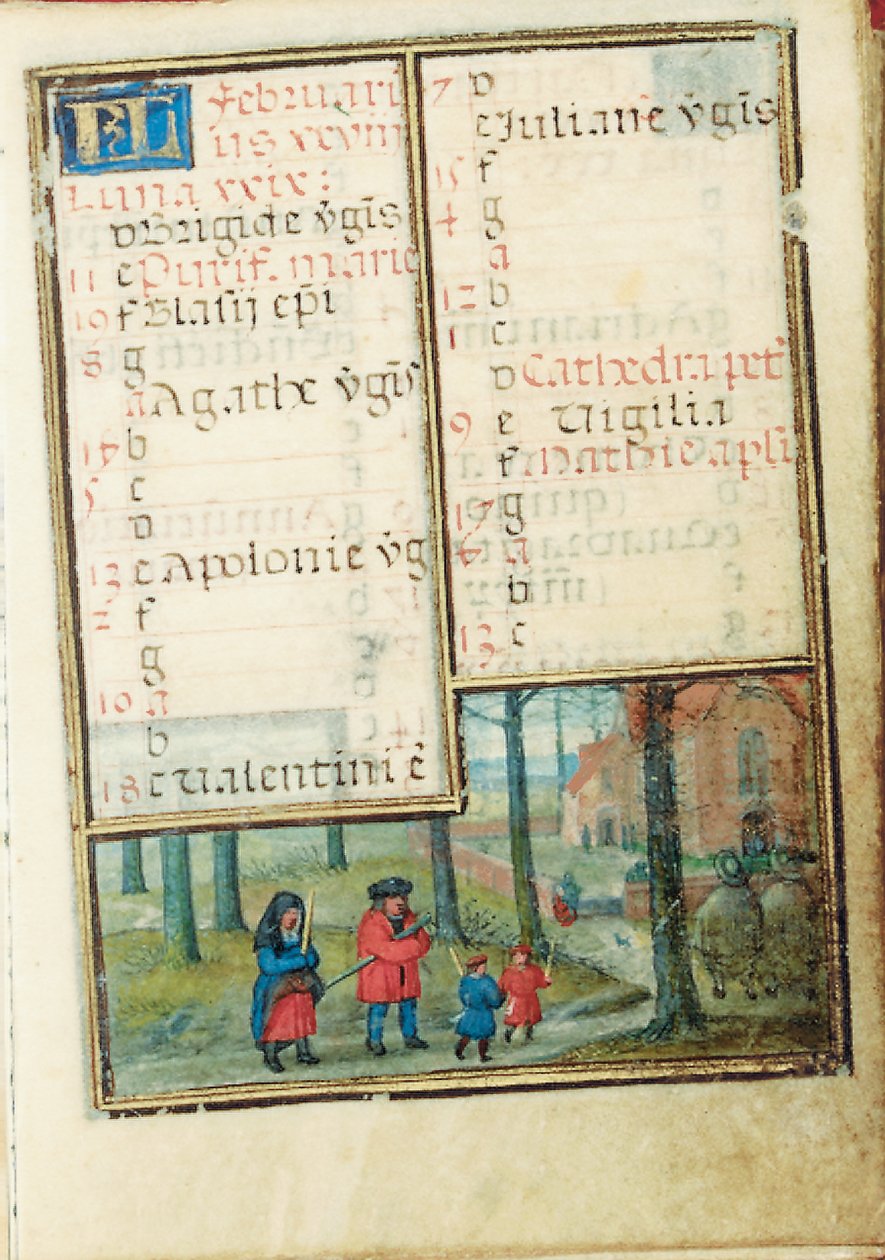 KL Februari
us xxviii
Luna xxix:
D Brigide v̄gis̄
11 e Purif. marie
19 f Blasij ep̄i
8 g
a Agathe v̄gis̄
16 b
5 c
D
13 e Apolonie v̄g
2 f
g
10 a
b
18 c Valentini ē
7 D
e Juliane v̄gis̄
15 f
4 g
a
12 b
1 c
D Cathedra pet
9 e Vigilia
f Mathie apli
17 g
6 a
b
13 c